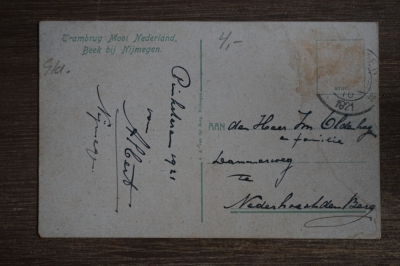 Trambrug Mooi Nederland,
Beek bij Nijmegen.
4,-
Pinksteren 1921
van
Albert
Nijmegen
AAN
den Heer Jm Oldenburg
en familie
Dammerweg
te
Nederhorst den Berg
1921